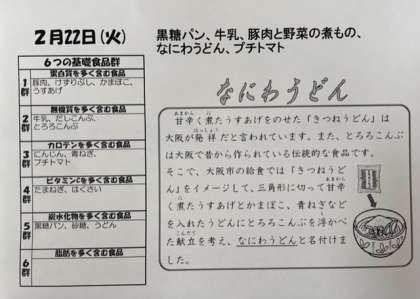 2月22日(火)
黒糖パン、牛乳、豚肉と野菜の煮もの、
なにわうどん、プチトマト
6つの基礎食品群
1群
蛋白質を多く含む食品
豚肉、けずりぶし、かまぼこ、
うすあげ
2群
無機質を多く含む食品
牛乳、だしこんぶ、
とろろこんぶ
3群
カロテンを多く含む食品
にんじん、青ねぎ、
プチトマト
4群
ビタミンCを多く含む食品
たまねぎ、はくさい
5群
炭水化物を多く含む食品
黒糖パン、砂糖、うどん
6群
脂肪を多く含む食品
なにわうどん
甘辛く煮たうすあげをのせた「きつねうどん」は
大阪が発祥だと言われています。また、とろろこんぶ
は大阪で昔から作られている伝統的な食品です。
そこで、大阪市の給食では「きつねうど
ん」をイメージして、三角形に切って甘辛
く煮たうすあげとかまぼこ、青ねぎなど
を入れたうどんにとろろこんぶを浮かべ
た献立を考え、なにわうどんと名付けまし
た。